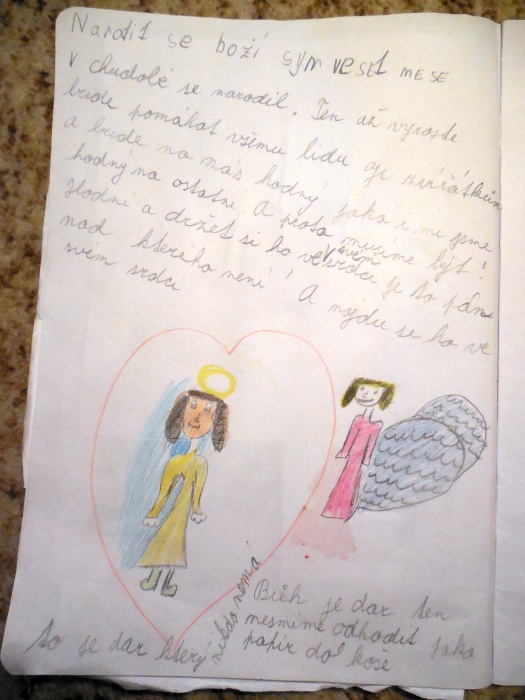 Narodit se boží syn veselme se
v chudobě se narodil. Ten až vyroste
bude pomáhat všemu lidu aji zvířátkům
a bude na nás hodný jako i mi jsme
hodný na ostatní. A proto musíme být
Hodní a držet si ho ve svém srdci je to pán
nad kterého není! A najdu se ho ve
svím srdci
to je dar který nikdo nemá
Bůh je dar ten
nesmíme odhodit jako
papír do koše